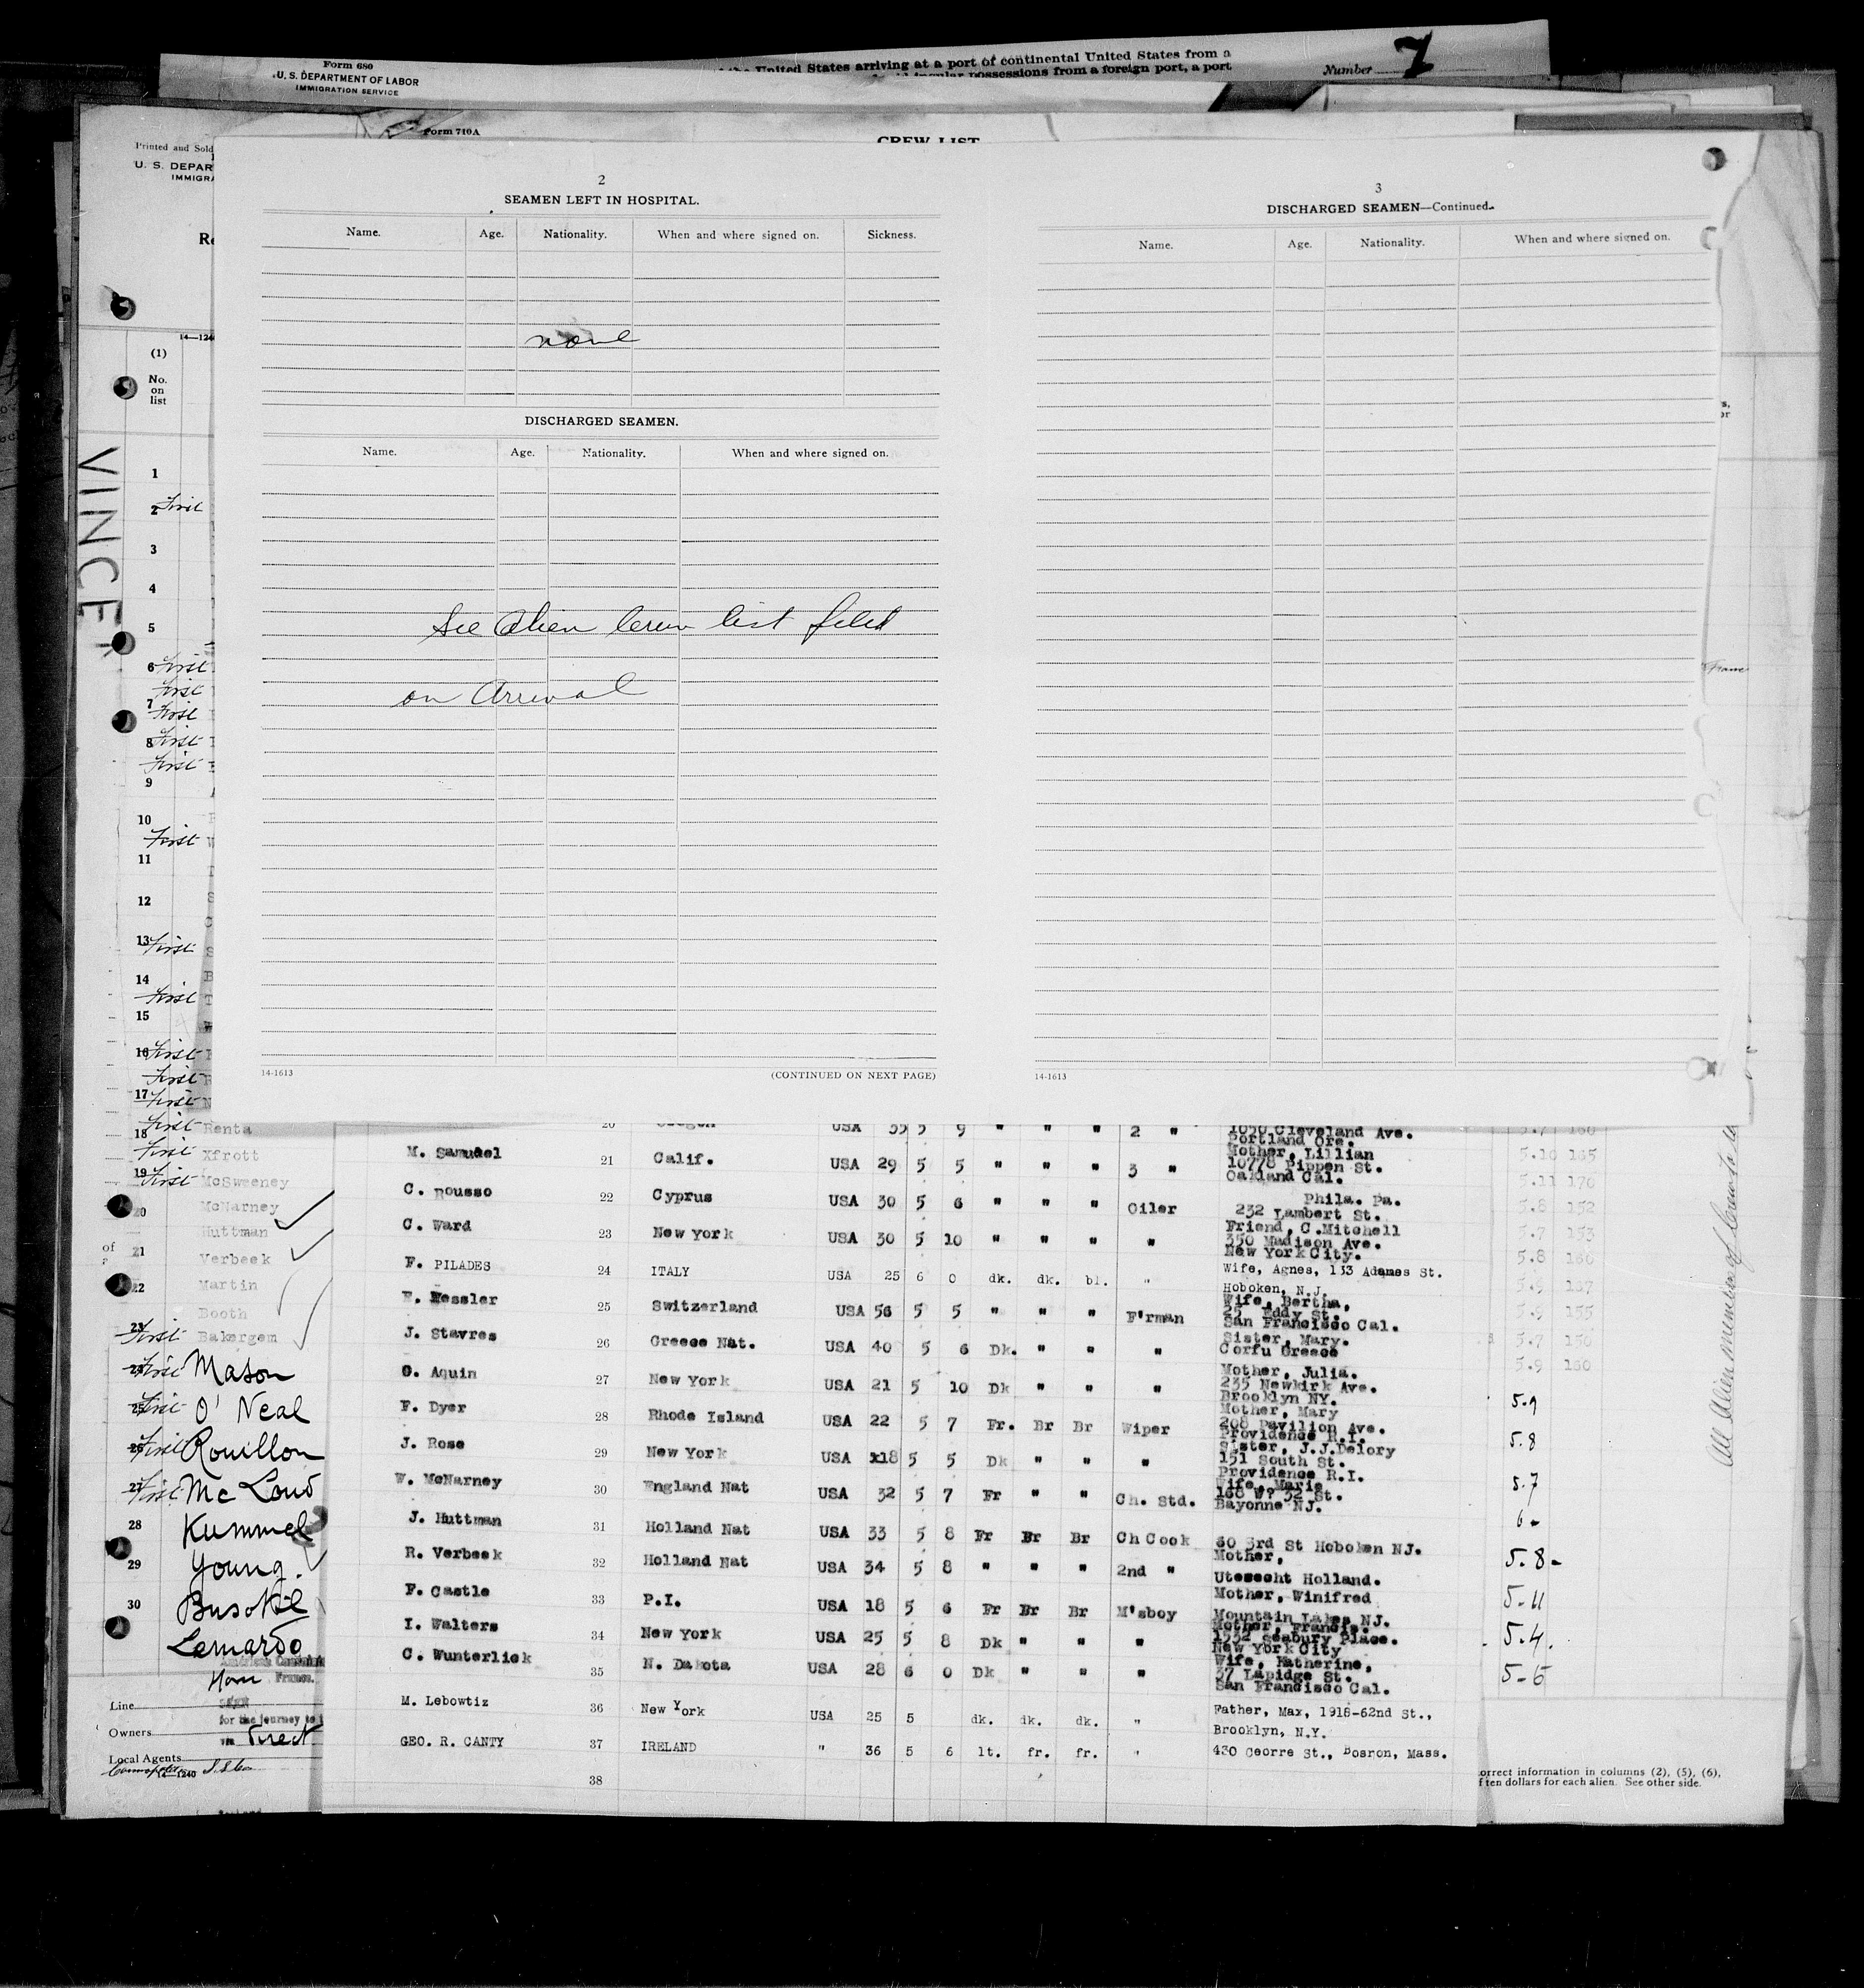 Form 680
U. S. DEPARTMENT OF LABOR
IMMIGRATION SERVICE
United States arriving at a port of continental United States from a
possessions from a foreign port, a port
Number 7
Form 710A
Printed and Sold
U. S. DEPAR
IMMIGRA
CREW LIST
Re
14—124
(1)
No.
on
list
VINCE
2
SEAMEN LEFT IN HOSPITAL.
Name. Age. Nationality. When and where signed on. Sickness.
none
DISCHARGED SEAMEN.
Name. Age. Nationality. When and where signed on.
See Alien Crew list filed
on Arrival
14-1613
(CONTINUED ON NEXT PAGE)
3
DISCHARGED SEAMEN—Continued.
Name. Age. Nationality. When and where signed on.
14-1613
1
2 First
3
4
5
6 First
First
7 First
8 First
First
9
10
First
11
12
13 First
14
First
15
16 First
First
17 First
First
18 Renta
First Xfrott
19 First McSweeney
20 McNarney
Huttman
of 21 Verbeek
22 Martin
Booth
23 First Bakergem
24 First Mason
25 First O'Neal
26 First Rouillon
27 First Mc Loud
28 Kummel
29 Young.
30
Lemardo
Line
for the journey to
Owners Direct
Local Agents
14—1240
20 USA 35 5 9 " " " 2 " 1050 Cleveland Ave.
Portland Ore.
M. Samuel 21 Calif. USA 29 5 5 " " " 3 " Mother, Lillian
10778 Pippen St.
Oakland Cal.
C. Rousso 22 Cyprus USA 30 5 6 " " " Oiler Phila. Pa.
232 Lambert St.
C. Ward 23 New York USA 30 5 10 " " " " Friend, C.Mitchell
350 Madison Ave.
New York City.
F. PILADES 24 ITALY USA 25 6 0 dk. dk. bl. " Wife, Agnes, 133 Adames St.
Hoboken, N.J.
E. Hessler 25 Switzerland USA 56 5 5 " " " F'rman Wife, Bertha,
25 Eddy St.
San Francisco Cal.
J. Stavres 26 Greece Nat. USA 40 5 6 Dk. " " " Sister, Mary.
Corfu Greece
C. Aquin 27 New York USA 21 5 10 Dk " " " Mother, Julia.
235 Newkirk Ave.
Brooklyn NY.
F. Dyer 28 Rhode Island USA 22 5 7 Fr. Br Br Wiper Mother, Mary
208 Pavilion Ave.
Providence R.I.
J. Rose 29 New York USA x18 5 5 Dk " " " Sister, J.J.Delory
151 South St.
Providence R.I.
W. McNarney 30 England Nat USA 32 5 7 Fr " " Ch. Std. Wife, Marie
168 W? 32 St.
Bayonne NJ.
J. Huttman 31 Holland Nat USA 33 5 8 Fr Br Br Ch Cook 60 3rd St Hoboken NJ.
R. Verbeek 32 Holland Nat USA 34 5 8 " " " 2nd " Mother,
Utesecht Holland.
F. Castle 33 P.I. USA 18 5 6 Fr Br Br M'sboy Mother, Winifred
Mountain Lakes NJ.
I. Walters 34 New York USA 25 5 8 Dk " " " Mother, Francis.
1532 Seabury Place.
New York City
C. Wunterlick 35 N. Dakota USA 28 6 0 Dk " " " Wife, Katherine,
37 Lapidge St.
San Francisco Cal.
M. Lebowtiz 36 New York USA 25 5 dk. dk. dk. " Father, Max, 1918-62nd St.,
Brooklyn, N.Y.
GEO. R. CANTY 37 IRELAND " 36 5 6 lt. fr. fr. " 430 Ceorre St., Bosron, Mass.
38
5.7 160
5.10 165
5.11 170
5.8 152
5.7 153
5.8 160
5.9 167
5.9 155
5.7 150
5.9 160
5.9
5.8
5.7
6-
5.8-
5-11
5-4.
5-6
orrect information in columns (2), (5), (6),
f ten dollars for each alien. See other side.